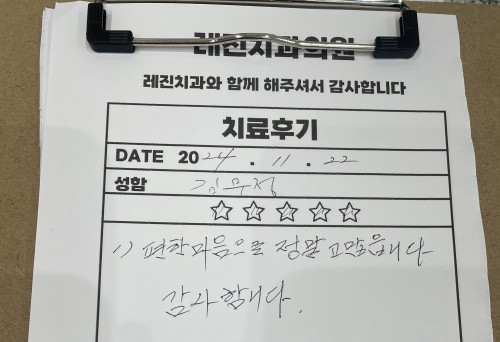 레진치과의원
레진치과와 함께 해주셔서 감사합니다
치료후기
DATE 2024 . 11 . 22
성함 김무정
☆☆☆☆☆
1) 편한마음으로 정말 고맙습니다
감사합니다.